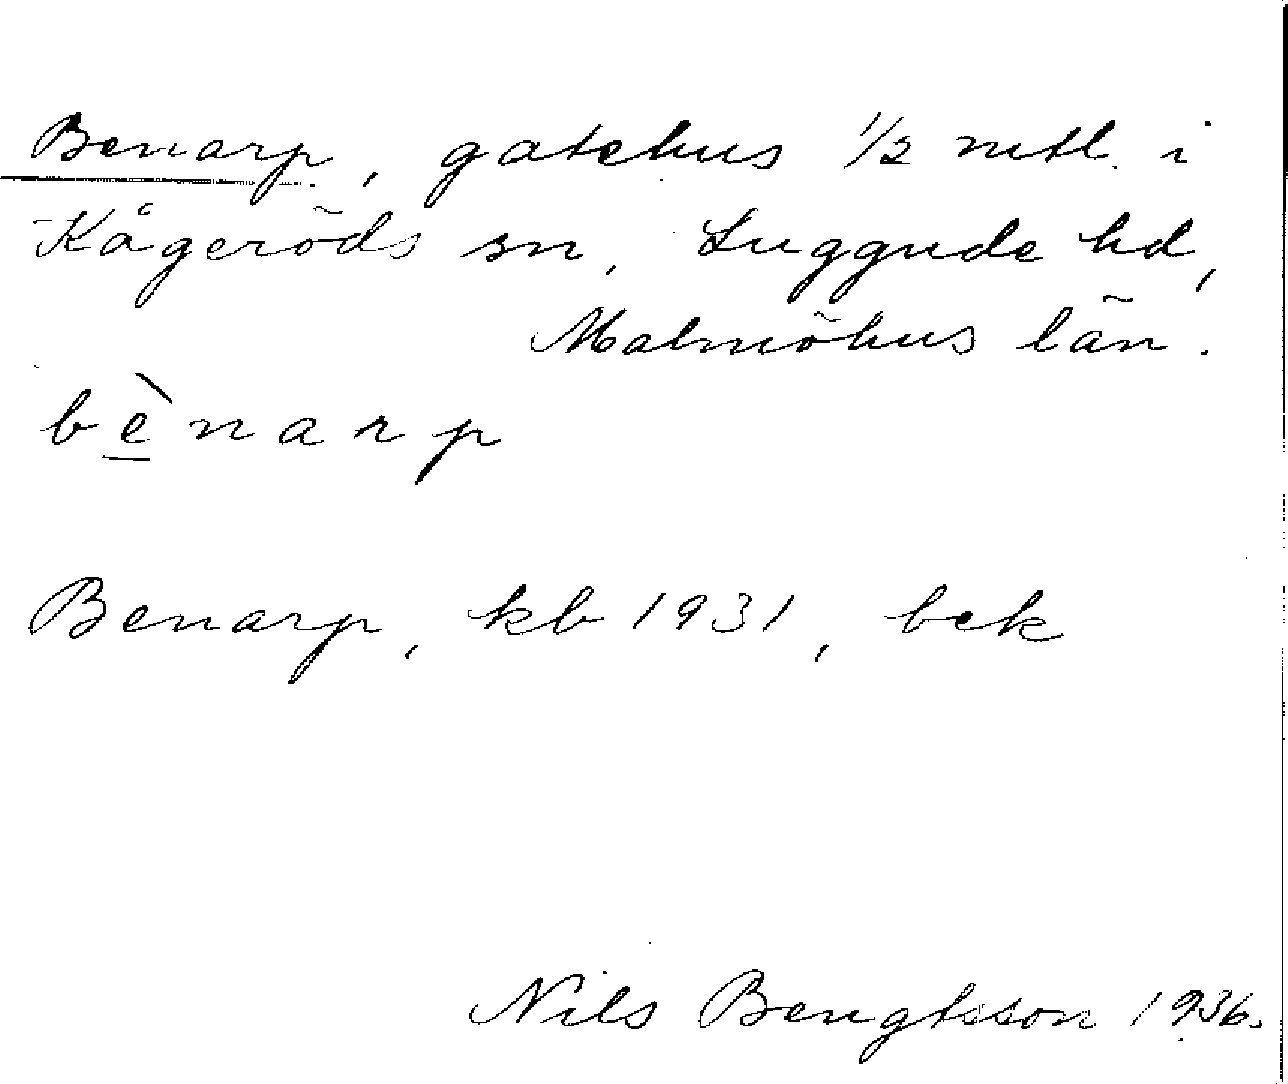 Benarp, gatehus 1/2 mtl. i
Kågeröds sn, Luggude hd,
Malmöhus län.
bènarp
Benarp, kb 1931, bek
Nils Bengtsson 1936.